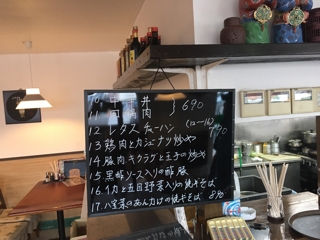 10. 牛丼
11 回鍋肉 } 690
12 レタスチャーハン (12〜16)
790
13 鶏肉とカシューナッツ炒め
14 豚肉キクラゲと玉子の炒め
15 黒酢ソース入りの酢豚
16 イカと五目野菜入りの焼そば
17 八宝菜のあんかけの焼そば 890